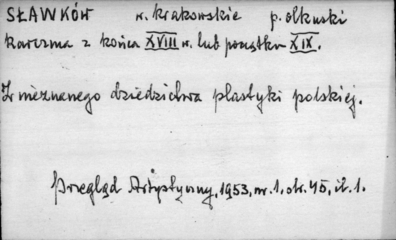 SŁAWKÓW w. krakowskie p. olkuski
Karczma z końca XVIII w. lub początku XIX.
Z nieznanego dziedzictwa plastyki polskiej.
Przegląd Artystyczny, 1953, nr. 1, str. 45, il. 1.